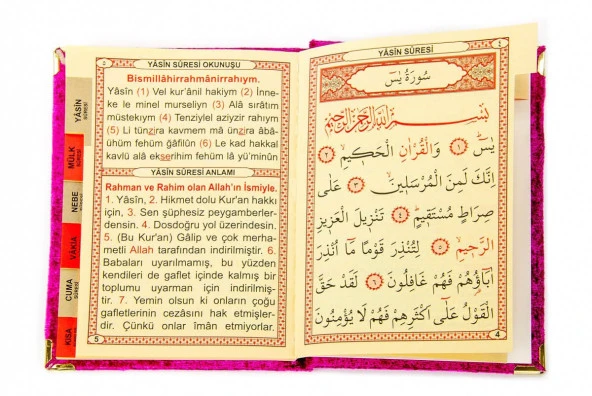 YÂSİN SÛRESİ
٤
سُورَةُ يٰسٓ
بِسْمِ اللّٰهِ الرَّحْمٰنِ الرَّحِيمِ
يٰسٓ ﴿١﴾ وَالْقُرْاٰنِ الْحَكِيمِ ﴿٢﴾
اِنَّكَ لَمِنَ الْمُرْسَلِينَ ﴿٣﴾ عَلٰى
صِرَاطٍ مُسْتَقِيمٍ ﴿٤﴾ تَنْزِيلَ الْعَزِيزِ
الرَّحِيمِ ﴿٥﴾ لِتُنْذِرَ قَوْمًا مَٓا اُنْذِرَ
اٰبَٓاؤُ۬هُمْ فَهُمْ غَافِلُونَ ﴿٦﴾ لَقَدْ حَقَّ
الْقَوْلُ عَلٰٓى اَكْثَرِهِمْ فَهُمْ لَا يُؤْمِنُونَ
4
YÂSİN SÛRESİ OKUNUŞU
Bismillâhirrahmânirrahıym.
Yâsîn (1) Vel kur'ânil hakiym (2) İnne-
ke le minel murseliyn (3) Alâ sırâtım
müstekıym (4) Tenziylel aziyzir rahıym
(5) Li tünzira kavmem mâ ünzira âbâ-
ühüm fehüm ğâfilûn (6) Le kad hakkal
kavlü alâ ekserihim fehüm lâ yü'minûn
YÂSİN SÛRESİ ANLAMI
Rahman ve Rahim olan Allah'ın İsmiyle.
1. Yâsîn, 2. Hikmet dolu Kur'an hakkı
için, 3. Sen şüphesiz peygamberler-
densin. 4. Dosdoğru yol üzerindesin.
5. (Bu Kur'an) Gâlip ve çok merha-
metli Allah tarafından indirilmiştir. 6.
Babaları uyarılmamış, bu yüzden
kendileri de gaflet içinde kalmış bir
toplumu uyarman için indirilmiş-
tir. 7. Yemin olsun ki onların çoğu
gafletlerinin cezâsını hak etmişler-
dir. Çünkü onlar îmân etmiyorlar.
5
YÂSİN
SÛRESİ
MÜLK
SÛRESİ
NEBE
SÛRESİ
VÂKIA
SÛRESİ
CUMA
SÛRESİ
KISA